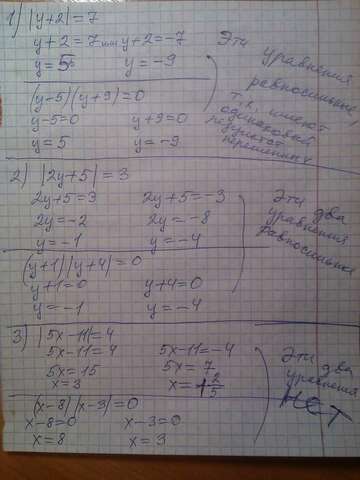 1) |y+2|=7
y+2=7 или y+2=-7
y=5 y=-9
(y-5)(y+9)=0
y-5=0 y+9=0
y=5 y=-9
Эти
уравнения
равносильные,
т.к. имеют
одинаковый
переменных
2) |2y+5|=3
2y+5=3 2y+5=-3
2y=-2 2y=-8
y=-1 y=-4
(y+1)(y+4)=0
y+1=0 y+4=0
y=-1 y=-4
Эти два
уравнения
равносильны
3) |5x-11|=4
5x-11=4 5x-11=-4
5x=15 5x=7
x=3 x=1 2/5
(x-8)(x-3)=0
x-8=0 x-3=0
x=8 x=3
Эти два
уравнения
НЕТ